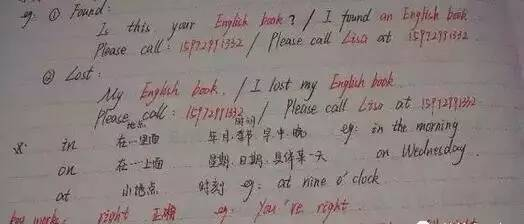 eg: ① Found:
Is this your English book? / I found an English book.
Please call: 15972991332 / Please call Lisa at 15972991332.
② Lost:
My English book. / I lost my English book.
Please call: 15972991332 / Please call Lisa at 15972991332.
地点 时间
in 在…里面 年.月.季节.早.中.晚 eg: in the morning
on 在…上面 星期.日期.具体某一天 on Wednesday.
at 小地点 时刻 eg: at nine o'clock
right 正确 eg: You're right